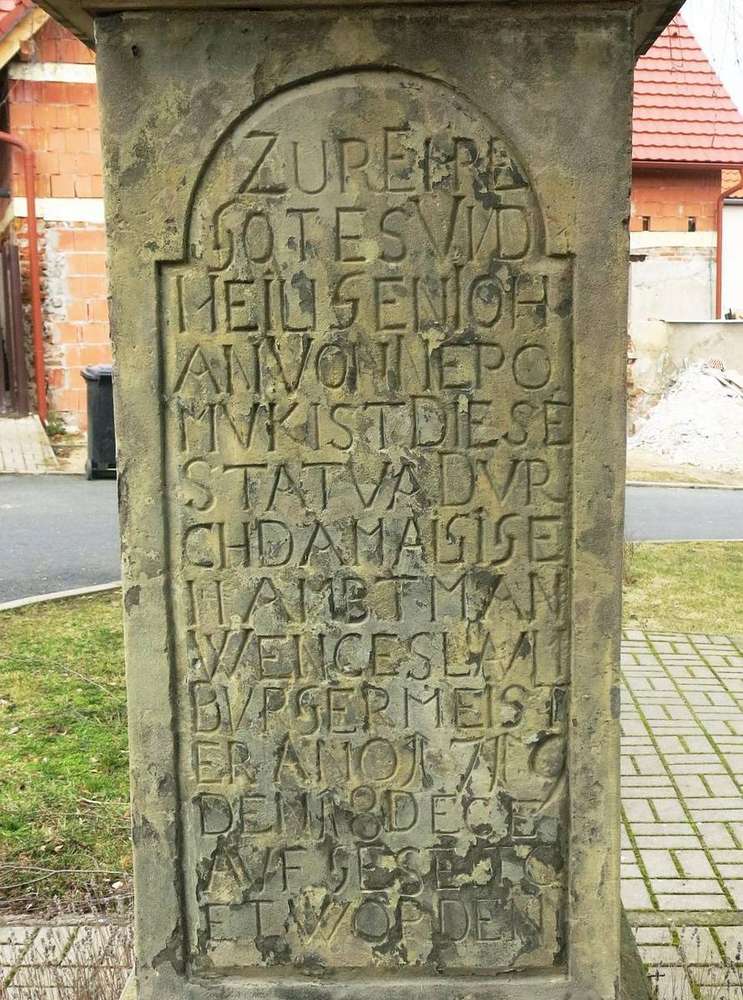 ZUR EHRE
GOTES VND
HEILIGEN IOH
AN VON NEPO
MVK IST DIESE
STATVA DVR
CH DAMALSIGE
HAMBTMAN
WENCESLAVI
BVRGSERMEIST
ER ANO 1719
DEN 18 DECE
AVFGESETC
ET WORDEN